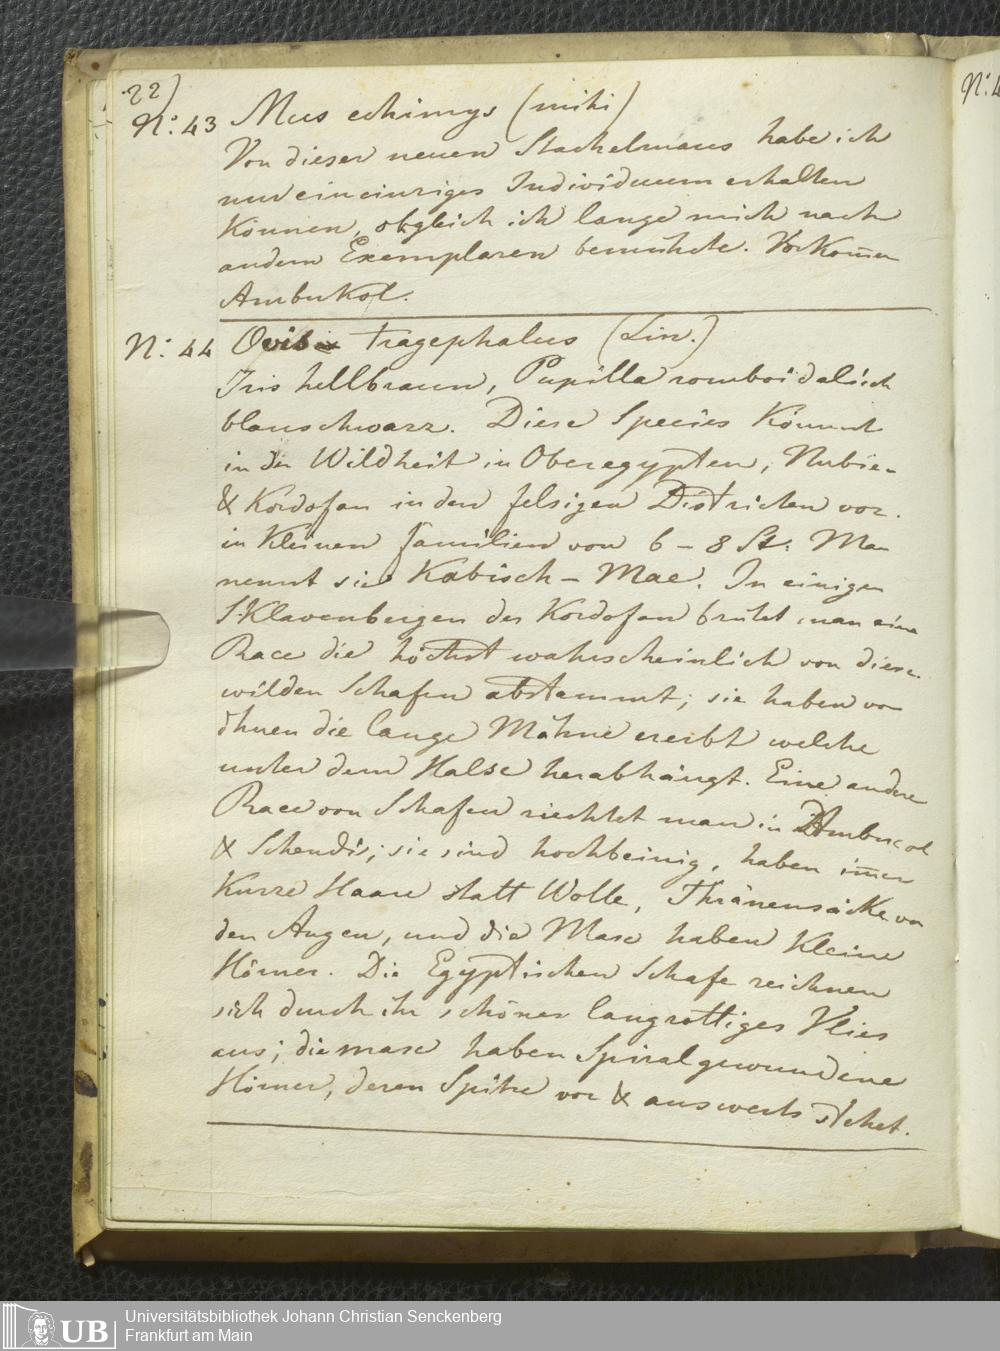 22)
N: 4
N: 43 Mus echimys (mihi)
Von dieser neuen Stachelmaus habe ich
nur ein einziges Individuum erhalten
können, obgleich ich lange mich nach
andern Exemplaren bemühete. Vorkom̄en
Ambukol.
N: 44 Ovis tragephalus (Lin.)
Iris hellbraun, Pupilla romboidalisch
blauschwarz. Diese Species kömmt
in der Wildheit in Oberegypten, Nubien
& Kordofan in den felsigen Districten vor.
in kleinen Familien von 6 – 8 St: Man
nennt sie Kabisch – Mae. In einigen
S:Klavenbergen des Kordofan brütet man eine
Race die höchst wahrscheinlich von diesen
wilden Schafen abstammt; sie haben von
ihnen die lange Mähne ererbt welche
unter dem Halse herabhängt. Eine andere
Race von Schafen ziechtet man in Ambucol
& Schendi; sie sind hochbeinig, haben im̄er
kurze Haare statt Wolle, Thränensäcke vor
den Augen, und die Masc haben kleine
Hörner. Die Egyptischen Schafe zeichnen
sich durch ihr schönes langzottiges Vlies
aus; die masc haben Spiral gewundene
Hörner, deren Spitze vor & auswerts stehet.
Universitätsbibliothek Johann Christian Senckenberg
Frankfurt am Main
UB